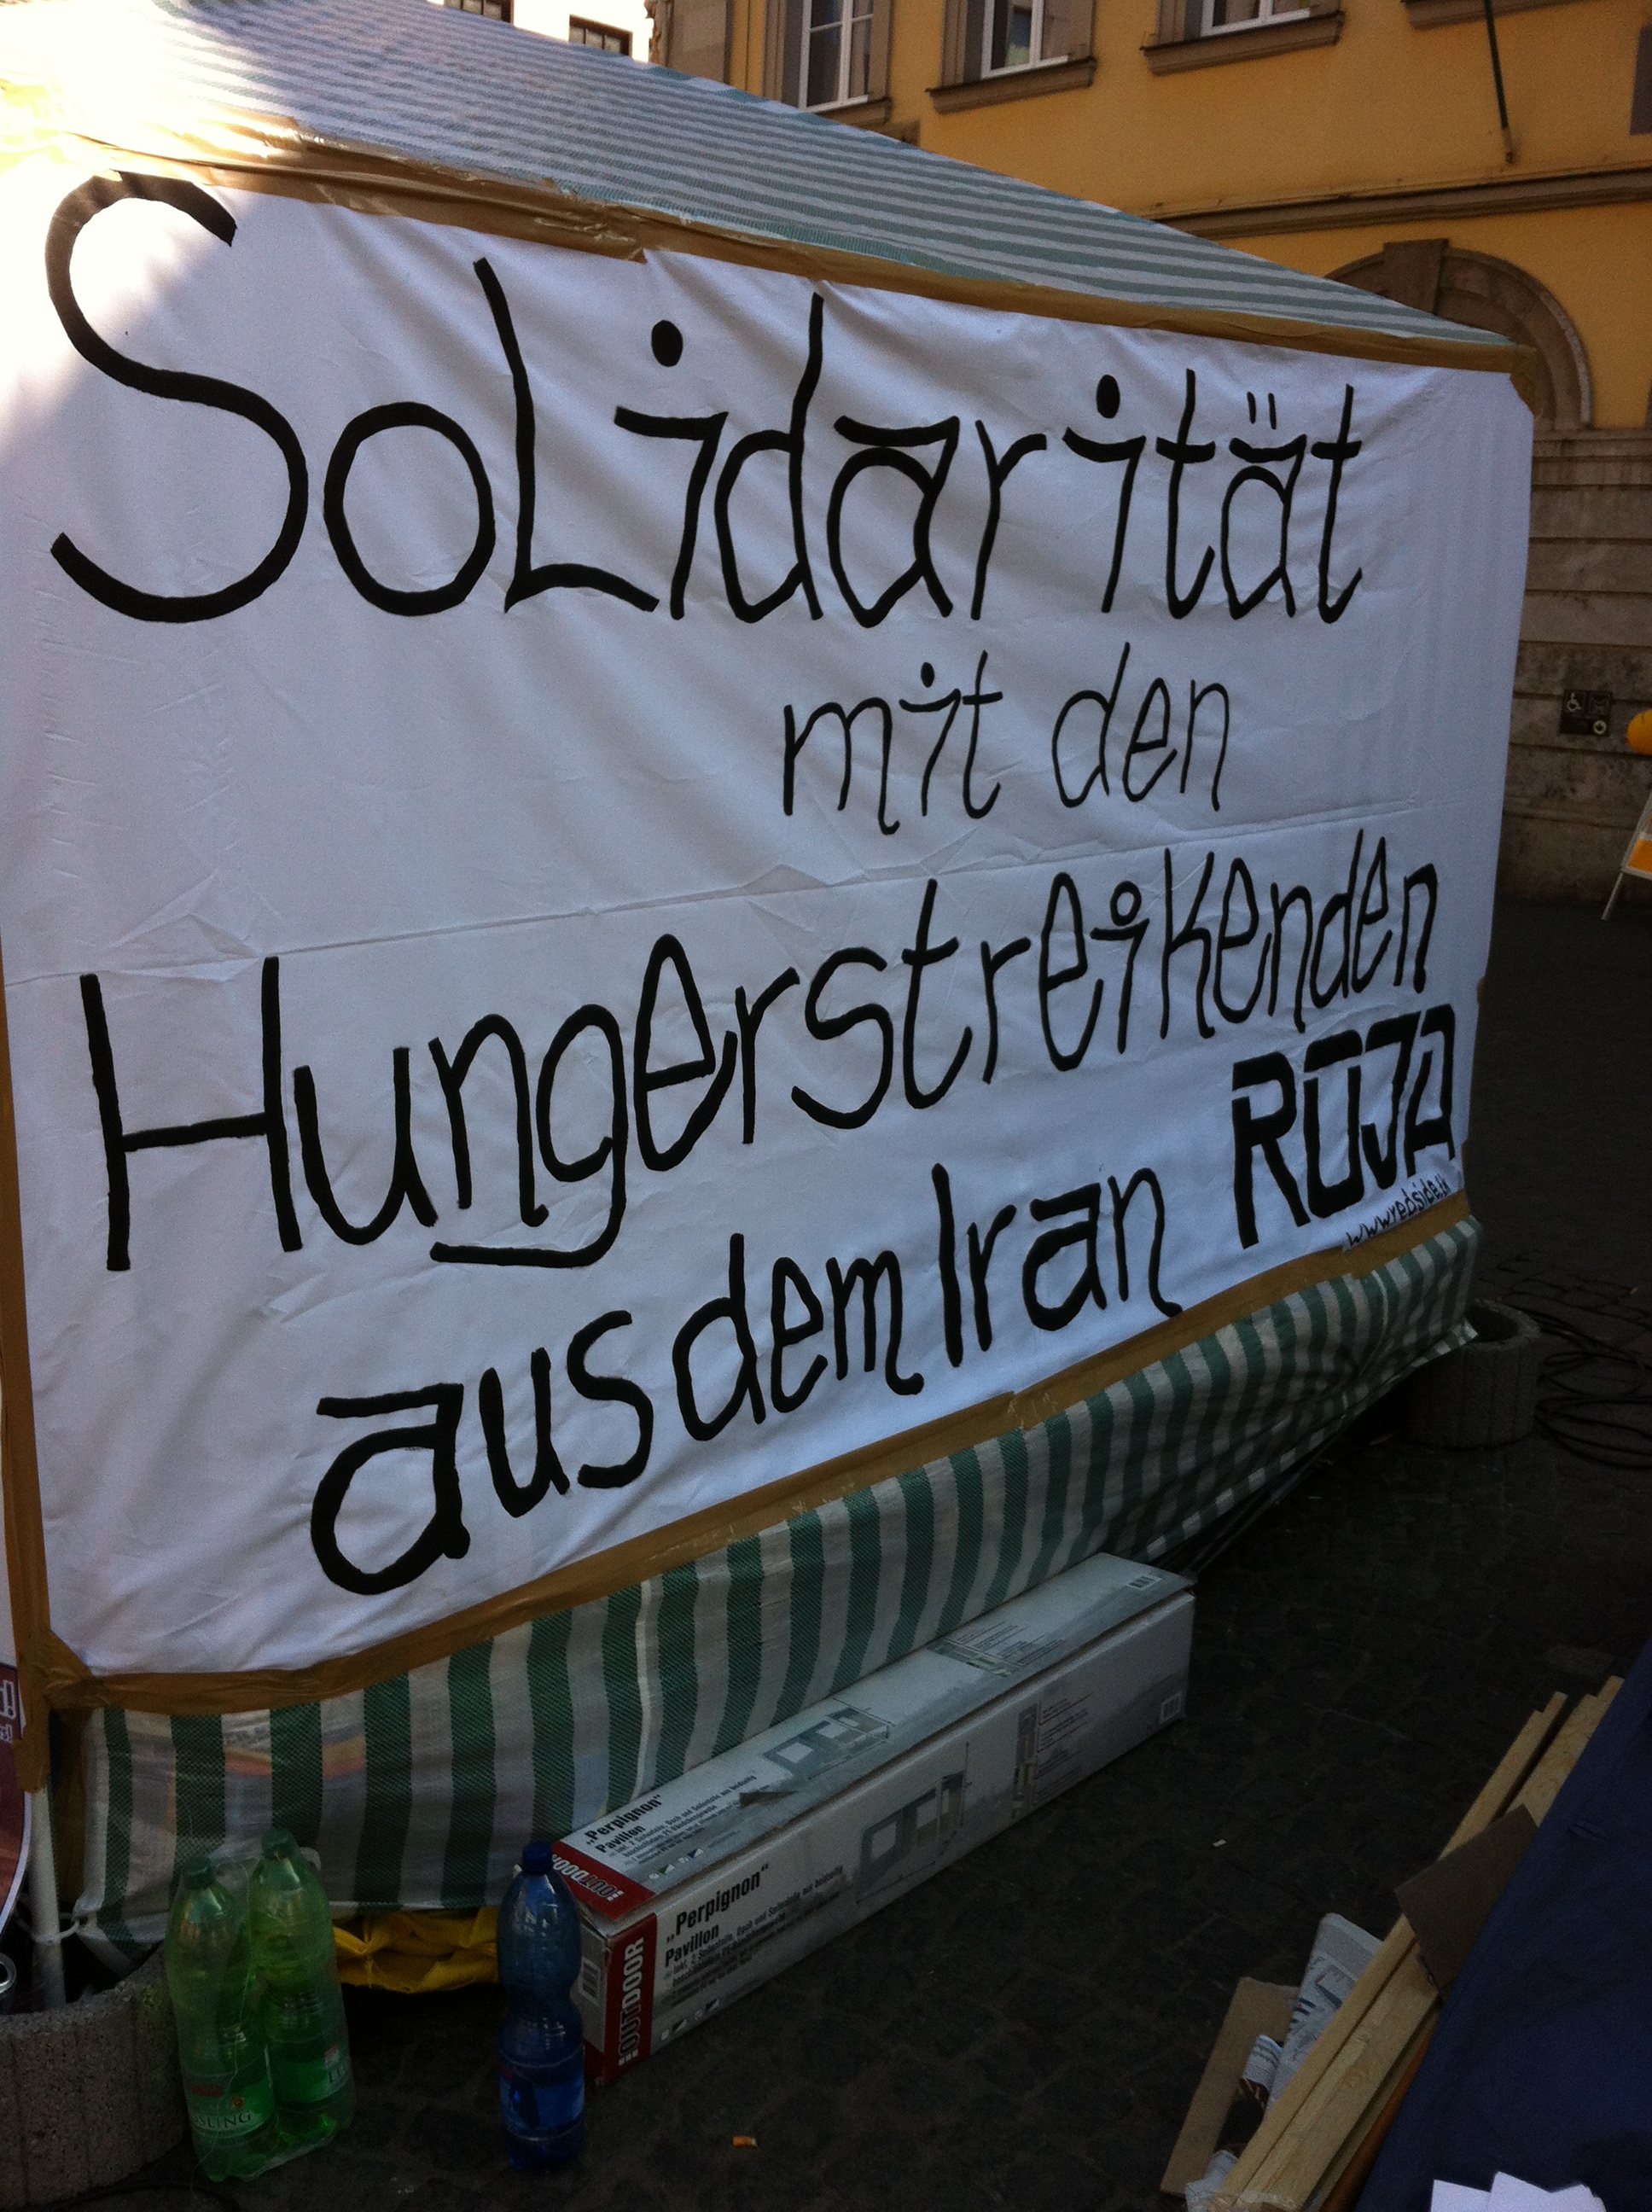 SoLidarität
mit den
Hungerstreikenden
aus dem Iran
ROJA
www.redside.tk
„Perpignon“
Pavillon
OUTDOOR
„Perpignon“
Pavillon
OUTDOOR